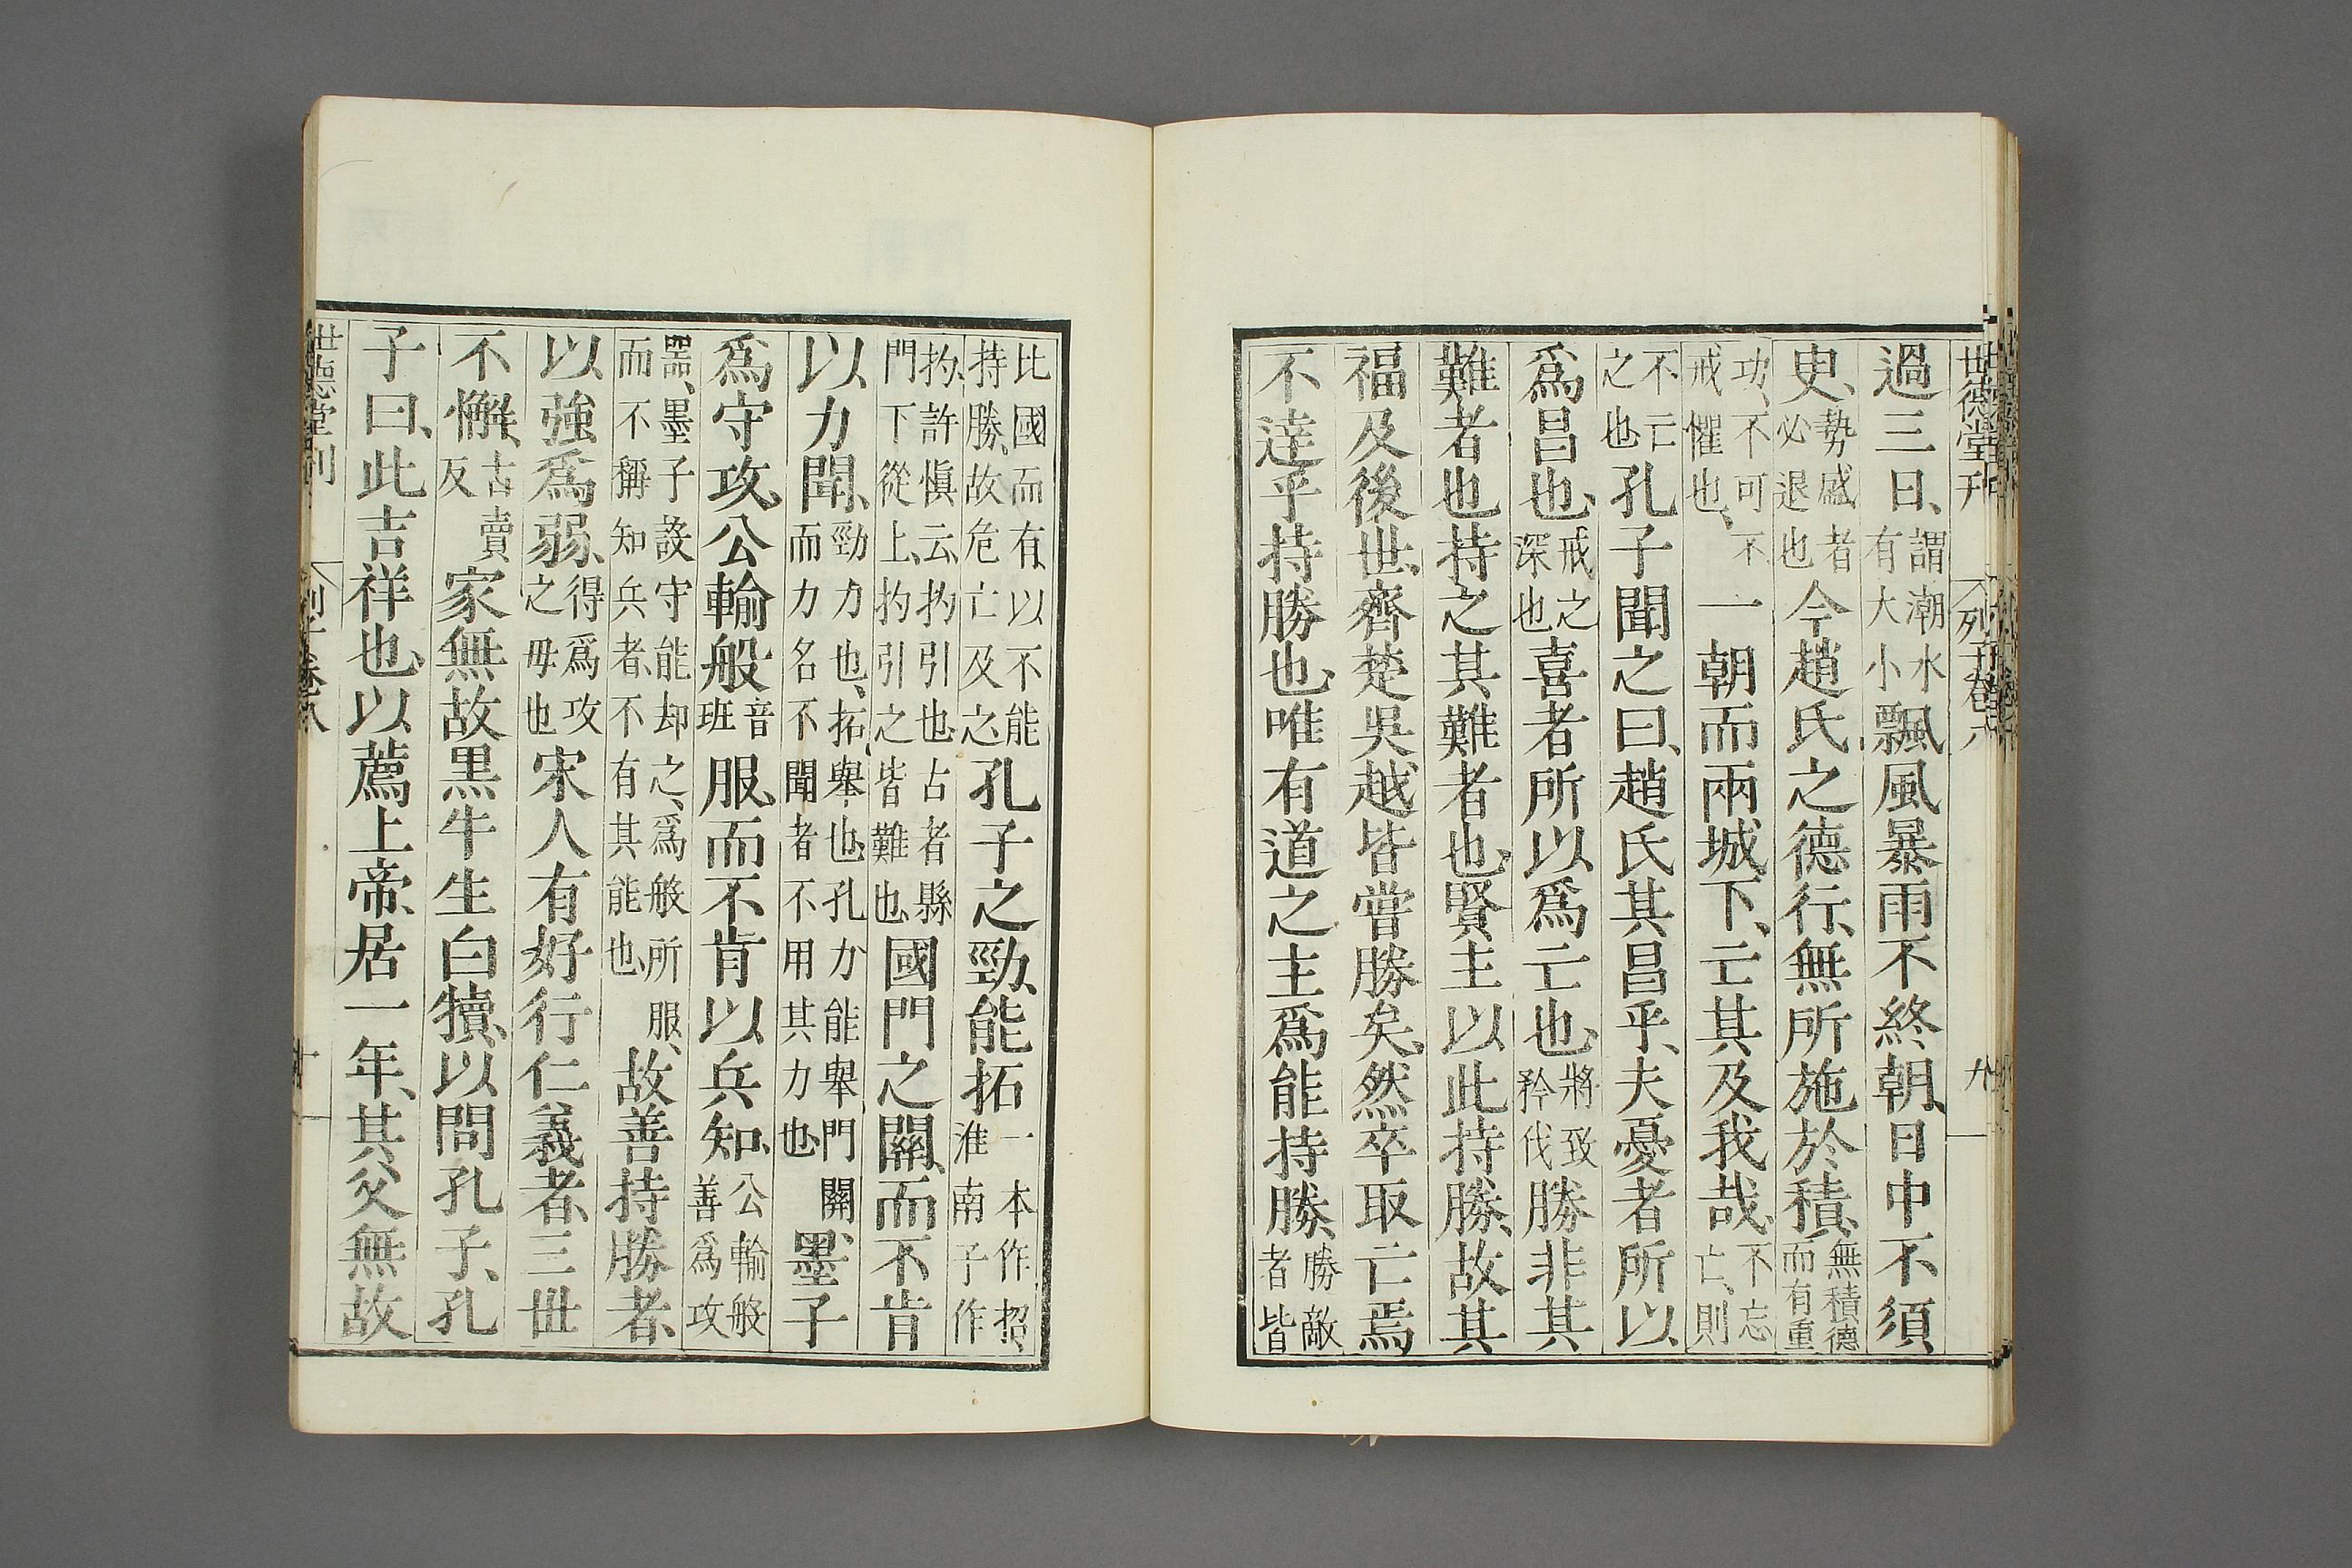 世德堂刊 列子卷八 九
過三日、謂潮水有大小飄風暴雨不終朝、日中不須
史、勢盛者必退也今趙氏之德行、無所施於積、無積德而有重
功、不可不戒懼也、一朝而兩城下、亡其及我哉、不忘亡、則
不亡之也孔子聞之曰、趙氏其昌乎、夫憂者所以
爲昌也、戒之深也喜者所以爲亡也、將致矜伐勝非其
難者也持之其難者也、賢主以此持勝、故其
福及後世、齊楚吳越皆嘗勝矣、然卒取亡焉
不達乎持勝也、唯有道之主爲能持勝、勝敵者皆
比國而有以不能持勝、故危亡及之孔子之勁、能拓一本作招、淮南子作
杓、許慎云、杓引也占者縣門下從上、杓引之皆難也、國門之關、而不肯
以力聞、勁力也、拓舉也、孔力能舉門關、而力名不聞者不用其力也、墨子
爲守攻、公輸般音班服、而不肯以兵知、公輸般善爲攻
器、墨子設守能却之、爲般所服、而不稱知兵者、不有其能也、故善持勝者、
以強爲弱、得爲攻之毋也宋人有好行仁義者、三世
不懈、古賣反家無故黑牛生白犢、以問孔子、孔
子曰、此吉祥也、以薦上帝、居一年、其父無故
世德堂刊 列子卷八